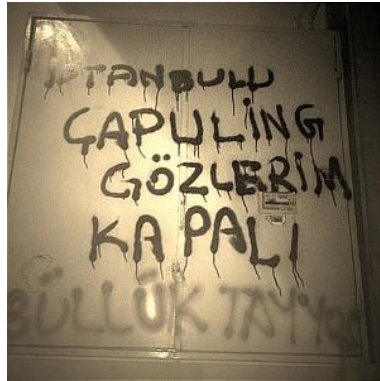 İSTANBULU
ÇAPULING
GÖZLERİM
KAPALI
BÜLLÜK TAYYO